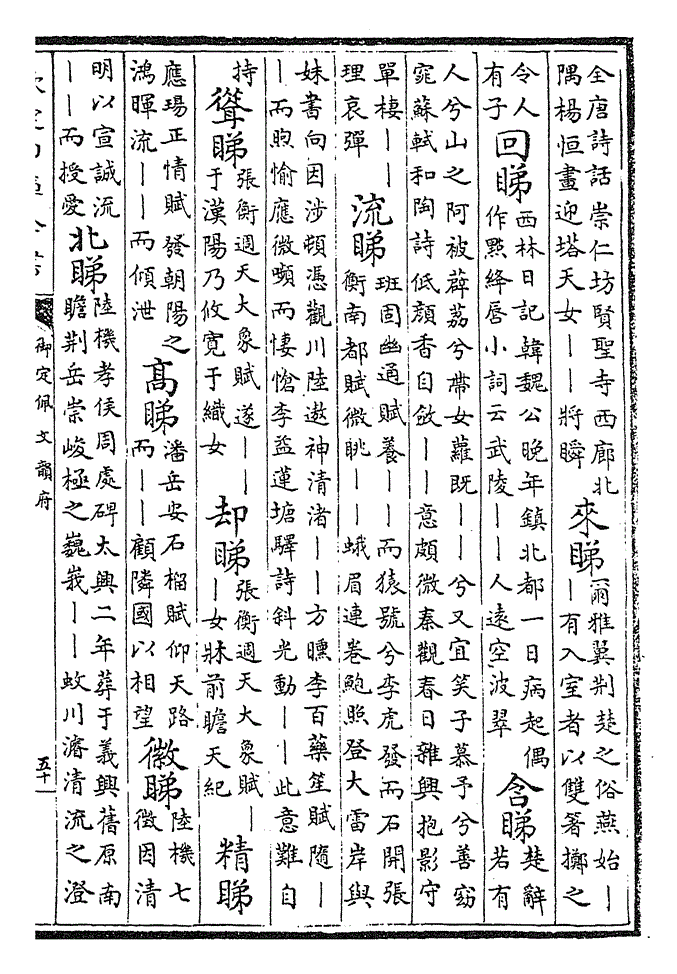 全唐詩話崇仁坊賢聖寺西廊北
隅楊恒畫迎塔天女丨丨將瞬
來睇
爾雅翼荆楚之俗燕始丨
丨有入室者以雙箸擲之
令人
有子
回睇
西林日記韓魏公晚年鎮北都一日病起偶
作點絳唇小詞云武陵丨丨人遠空波翠
含睇
楚辭
若有
人兮山之阿被薜荔兮帶女蘿既丨丨兮又宜笑子慕予兮善窈
窕蘇軾和陶詩低顔香自斂丨丨意頗微秦觀春日雜興抱影守
單棲丨丨
理哀彈
流睇
班固幽通賦養丨丨而猿號兮李虎發而石開張
衡南都賦微眺丨丨蛾眉連卷鮑照登大雷岸與
妹書向因涉頓憑觀川陸遨神清渚丨丨方曛李百藥笙賦隨丨
丨而煦愉應微嚬而悽愴李益蓮塘驛詩斜光動丨丨此意難自
持
聳睇
張衡週天大象賦遂丨丨
于漢陽乃攸寛于織女
却睇
張衡週天大象賦丨
丨女牀前瞻天紀
精睇
應瑒正情賦發朝陽之
鴻暉流丨丨而傾泄
髙睇
潘岳安石榴賦仰天路
而丨丨顧隣國以相望
徽睇
陸機七
徴因清
明以宣誠流
丨丨而授愛
北睇
陸機孝侯周處碑太興二年葬于義興舊原南
瞻荆岳崇峻極之巍峩丨丨蛟川濬清流之澄
御定佩文韻府
五十